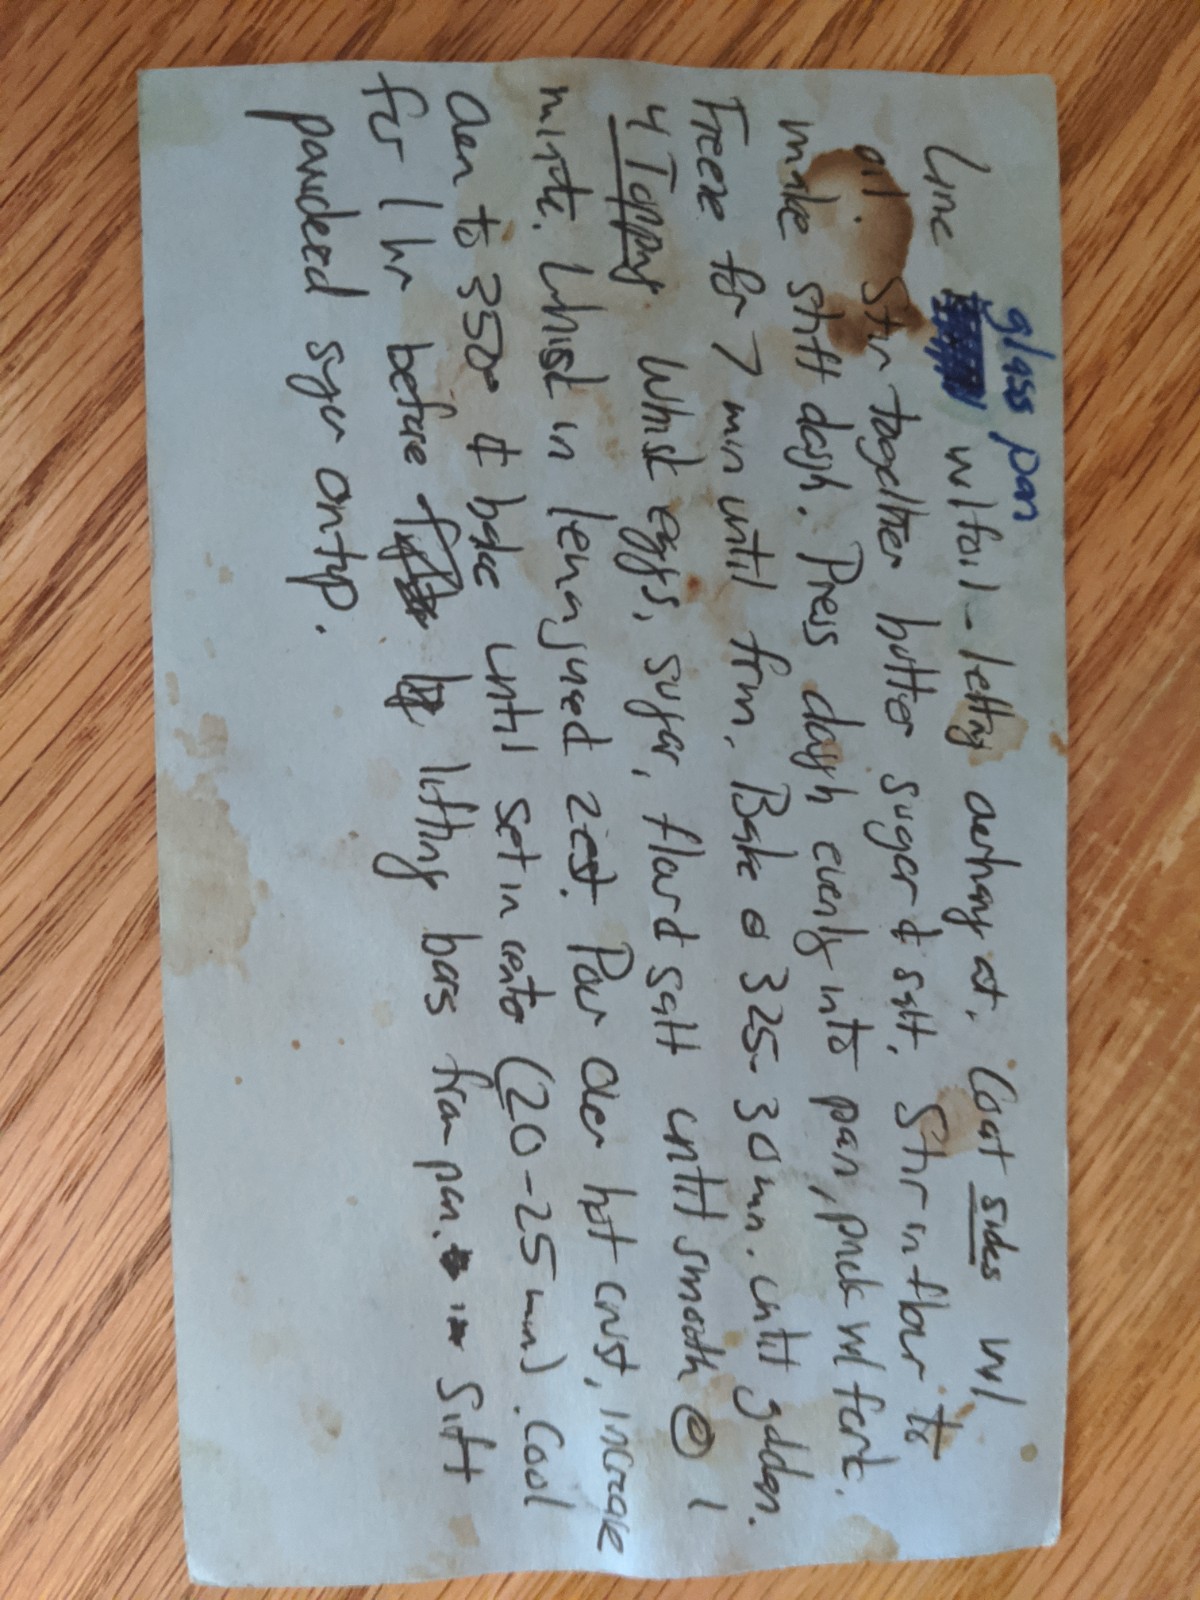 glass pan
Line w/foil - letting overhang at. Coat sides w/
oil. Stir together butter sugar & salt. Stir in flour to
make stiff dough. Press dough evenly into pan, prick w/ fork.
Freeze for 7 min until firm. Bake @ 325 - 30 min. until golden.
4 Topping. Whisk eggs, sugar, flour & salt until smooth @ 1
minute. Whisk in lemon juice & zest. Pour over hot crust, increase
oven to 350° & bake until set in center (20-25 min). Cool
for 1 hr before lifting bars from pan. Sift
powdered sugar on top.